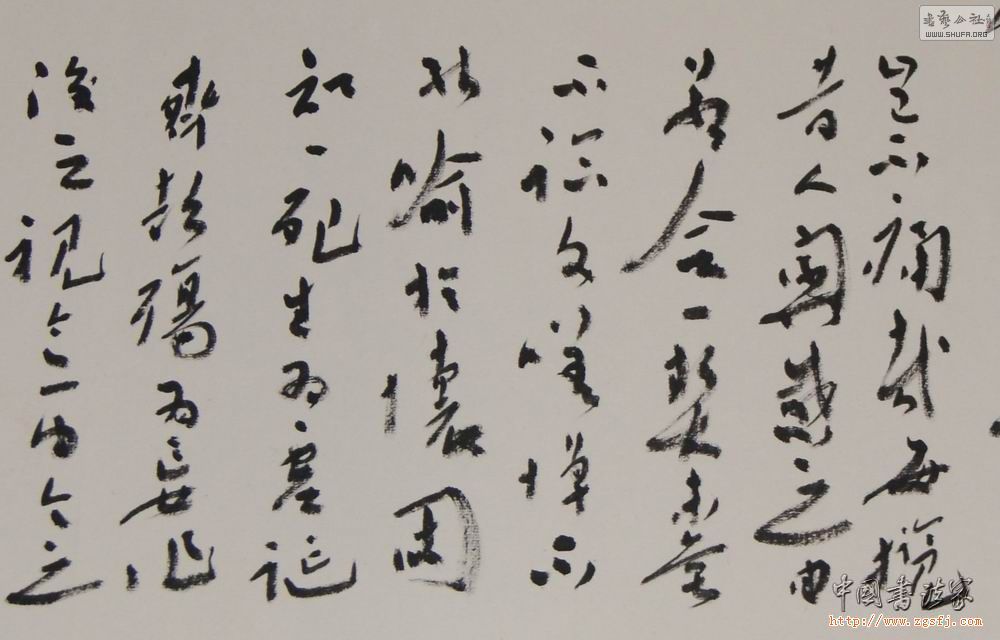 豈不痛哉每攬
昔人興感之由
若合一契未嘗
不臨文嗟悼不
能喻於懷固
知一死生為虛誕
齊彭殤為妄作
後之視今亦由今之
書藝公社
WWW.SHUFA.ORG
中國書法家
http://www.zgsfj.com